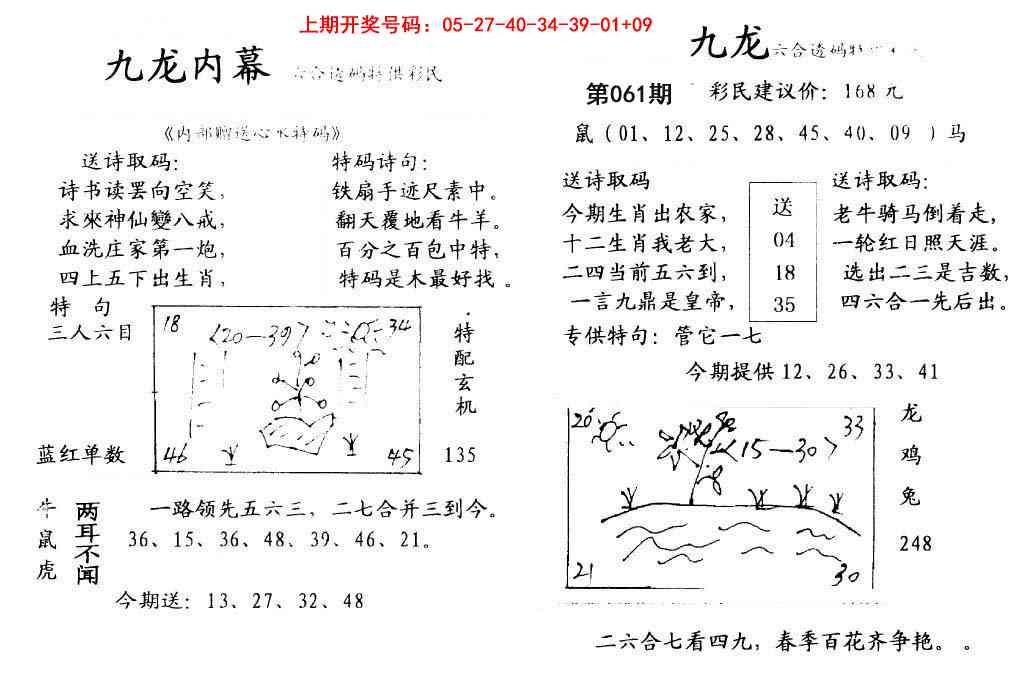 上期开奖号码：05-27-40-34-39-01+09
九龙内幕 六合透码特供彩民
《内部赠送心水特码》
送诗取码：
诗书读罢向空笑，
求來神仙變八戒，
血洗庄家第一炮，
四上五下出生肖，
特码诗句：
铁扇手迹尺素中。
翻天覆地看牛羊。
百分之百包中特，
特码是木最好找。
特 句
三人六目
蓝红单数
18
<20—39>
34
46
45
特配玄机
135
牛鼠虎
两耳不闻
一路领先五六三，二七合并三到今。
36、15、36、48、39、46、21。
今期送：13、27、32、48
九龙 六合透码特
第061期 彩民建议价：168元
鼠（01、12、25、28、45、40、09 ）马
送诗取码
今期生肖出农家，
十二生肖我老大，
二四当前五六到，
一言九鼎是皇帝，
送
04
18
35
送诗取码：
老牛骑马倒着走，
一轮红日照天涯。
选出二三是吉数，
四六合一先后出。
专供特句：管它一七
今期提供12、26、33、41
20
33
<15—30>
21
30
龙
鸡
兔
248
二六合七看四九，春季百花齐争艳。 。